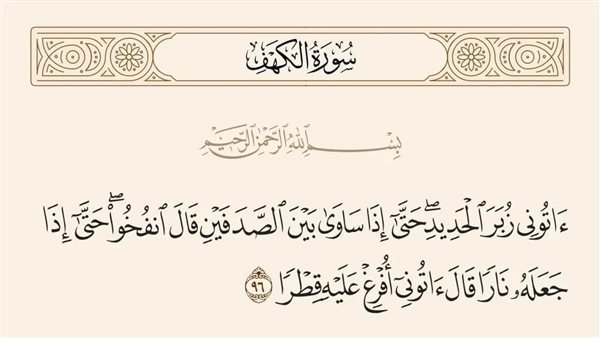 سُورَةُ الكَهْفِ
بِسْمِ ٱللَّهِ ٱلرَّحْمَٰنِ ٱلرَّحِيمِ
ءَاتُونِى زُبَرَ ٱلْحَدِيدِ ۖ حَتَّىٰٓ إِذَا سَاوَىٰ بَيْنَ ٱلصَّدَفَيْنِ قَالَ ٱنفُخُوا۟ ۖ حَتَّىٰٓ إِذَا
جَعَلَهُۥ نَارًا قَالَ ءَاتُونِىٓ أُفْرِغْ عَلَيْهِ قِطْرًا ٩٦